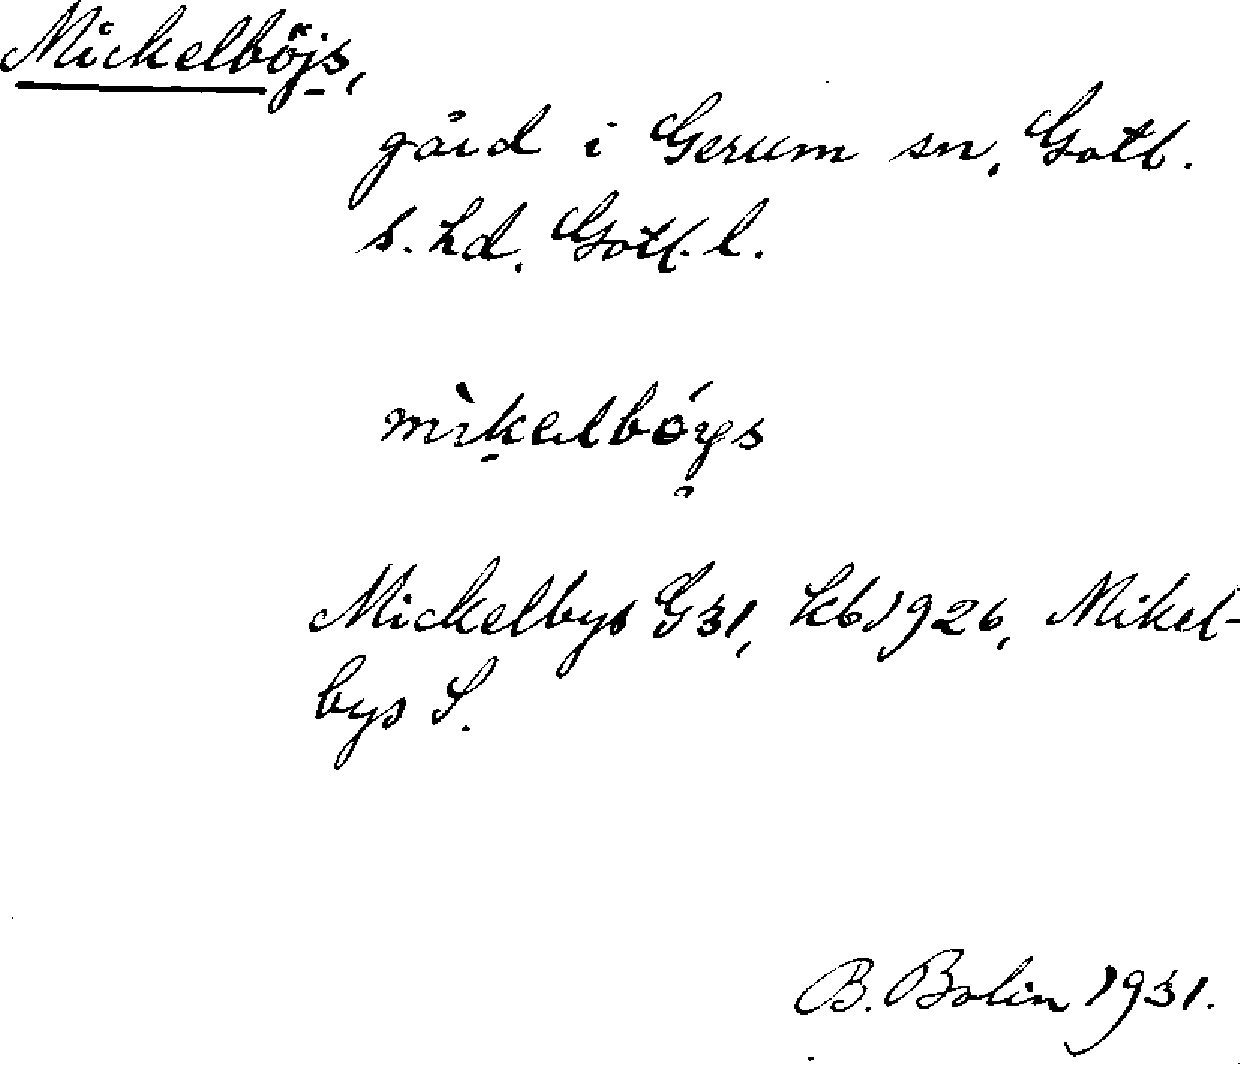 Mickelböjs,
gård i Gerum sn, Gotl.
s. hd, Gotl. l.
mìkelbóys
Mickelbys G31, kb 1926, Mikel-
bys S.
B. Bolin 1931.